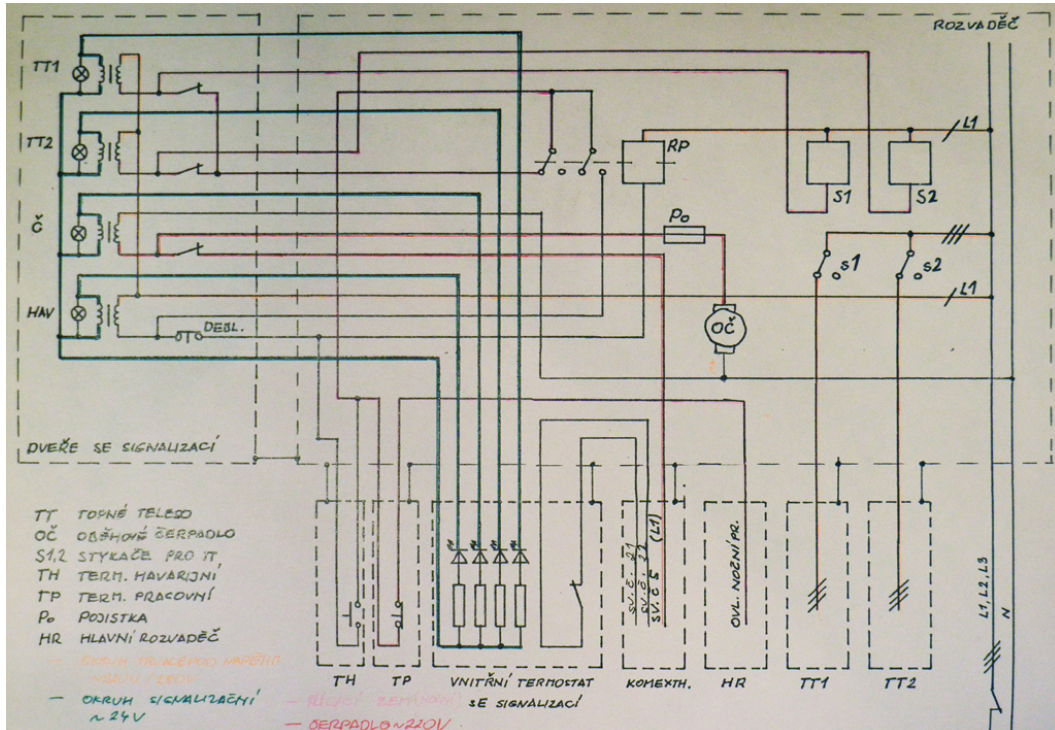 ROZVADĚČ
TT1
TT2
Č
HAV
DEBL.
RP
Po
OČ
S1
S2
s1
s2
L1
L1
DVEŘE SE SIGNALIZACÍ
TT TOPNÉ TĚLESO
OČ OBĚHOVÉ ČERPADLO
S1,2 STYKAČE PRO TT
TH TERM. HAVARIJNÍ
TP TERM. PRACOVNÍ
Po POJISTKA
HR HLAVNÍ ROZVADĚČ
— OKRUH SIGNALIZAČNÍ
~ 24V
— ČERPADLO ~220V
SV.Č. 21
SV.Č. 22
SV.Č 5 (L1)
OVL. NOČNÍ PR.
L1, L2, L3
N
TH
TP
VNITŘNÍ TERMOSTAT
SE SIGNALIZACÍ
KOMEXTH.
HR
TT1
TT2